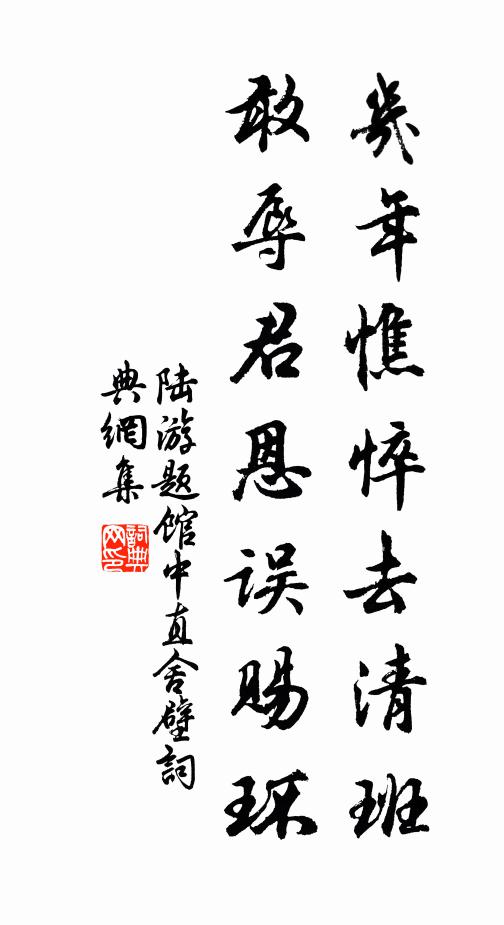 幾年憔悴去清班
敢辱君恩误赐环
陆游题馆中直舍壁詞
典網集
詞典
网印